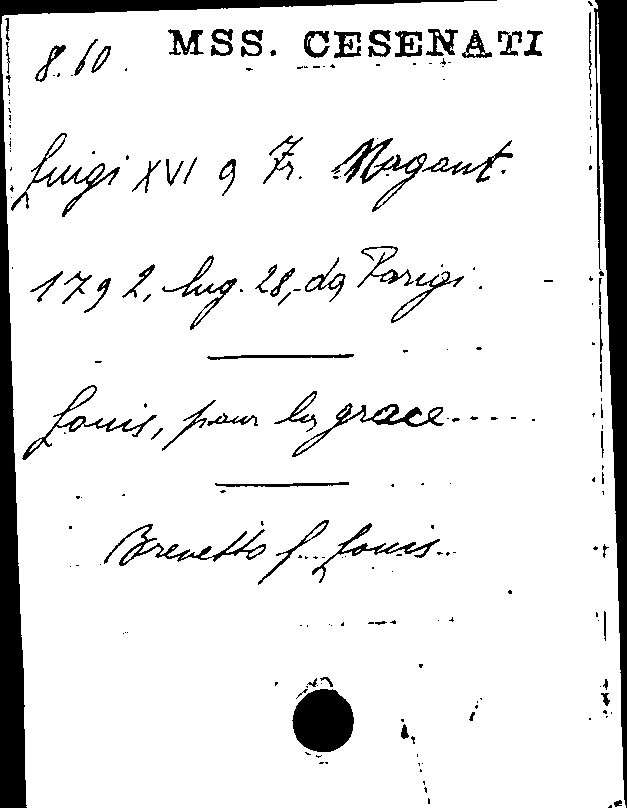 8.60. MSS. CESENATI
Luigi XVI a Fr. Magant.
1792, lug. 28, da Parigi.
Louis, pour la grace.....
Brevetto f. Louis..